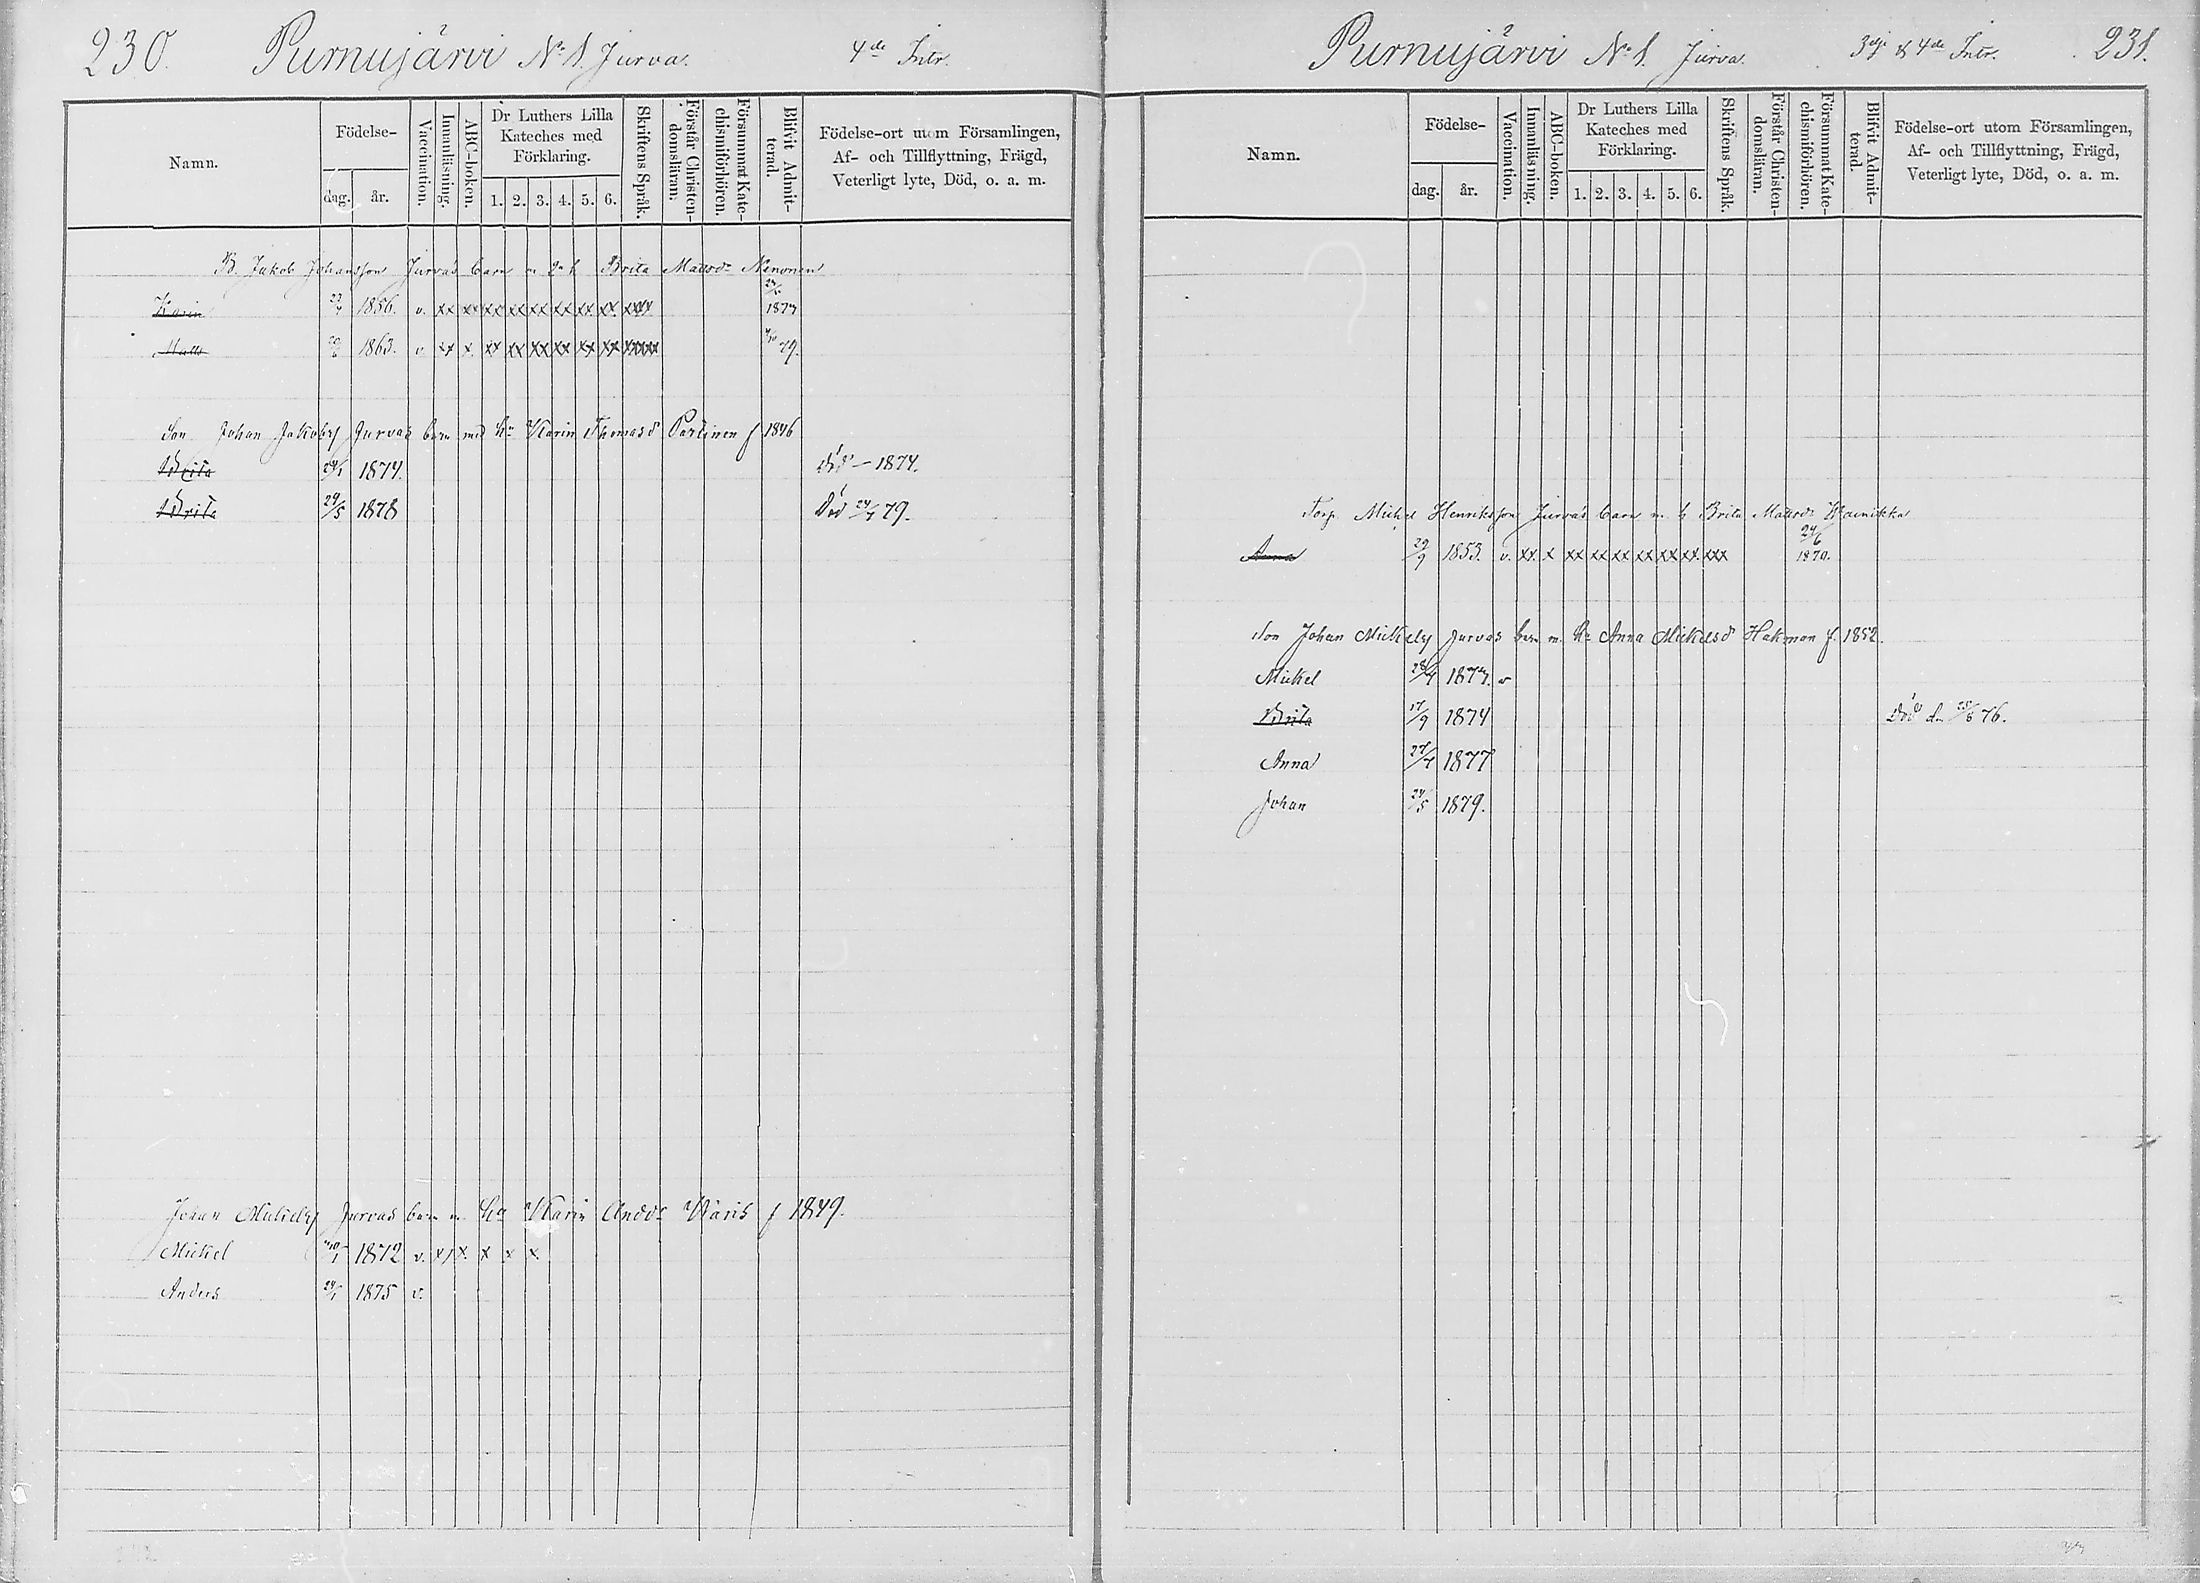 230. Purnujärvi No 1. Jurva. 4de Intr.
Namn.
Födelse-
dag. år.
Vaccination.
Innanläsning.
ABC-boken.
Dr Luthers Lilla Kateches med Förklaring.
1. 2. 3. 4. 5. 6.
Skriftens Språk.
Förstår Christen-domsläran.
Försummat Kate-chismiförhören.
Blifvit Admit-terad.
Födelse-ort utom Församlingen,
Af- och Tillflyttning, Frägd,
Veterligt lyte, Död, o. a. m.
B. Jakob Johansson Jurvas barn m Brita Matsdr Nenonen
Karin 1856. v. xx xx xx xx xx xx xx xx 1874
Matts 1863. v xx x xx xx xx xx xx xx 79.
Son Johan Jakobss Jurvas barn med hu Karin Thomasd Partinen f 1846
Brita 1874. Död — 1874.
Brita 29/5 1878 Död 79.
Johan Mickelss Jurvas barn m hu Karin Andd: Wäris f 1849.
Mickel 1872 v. x x x. x x x.
Anders 1875 v.
Purnujärvi No 1. Jurva. 3dje & 4de Intr. 231.
Namn.
Födelse-
dag. år.
Vaccination.
Innanläsning.
ABC-boken.
Dr Luthers Lilla Kateches med Förklaring.
1. 2. 3. 4. 5. 6.
Skriftens Språk.
Förstår Christen-domsläran.
Försummat Kate-chismiförhören.
Blifvit Admit-terad.
Födelse-ort utom Församlingen,
Af- och Tillflyttning, Frägd,
Veterligt lyte, Död, o. a. m.
Torp. Michel Henriksson Jurvas barn m. h Brita Matsdr Kainikka
24/6
Anna 29/9 1853. v. xx. x xx xx xx xx xx xx. xxx 1870.
Son Johan Mickelss Jurvas barn m. hu Anna Mickelsd Hakman f. 1852.
Mickel 1874. v
Brita 17/9 1874 Död d. 76.
Anna 1877
Johan 24/5 1879.